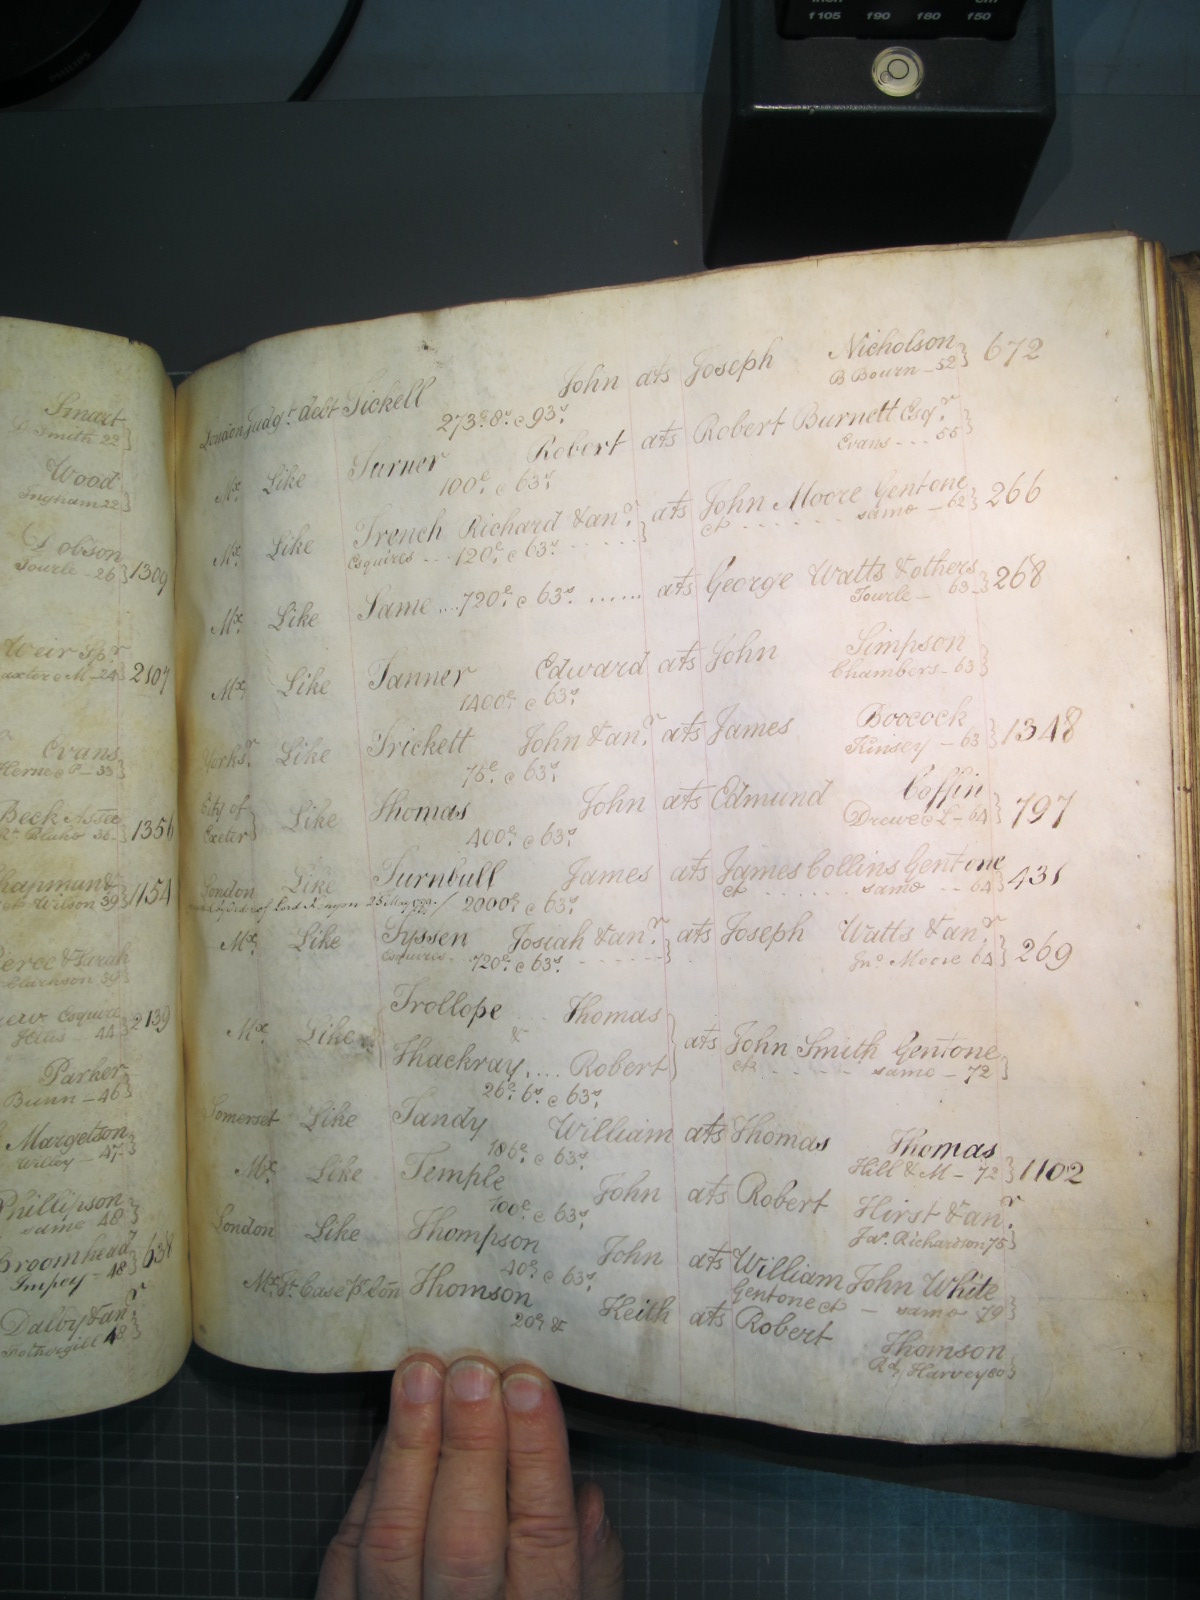 PHILIPS
inch cm
1105 190 180 150
Smart
Smith 22}
Wood
Ingham 22}
Dobson
Tourle - 26} 1309
Weir Spr
Baxter & M - 24} 2107
Evans
Herne & P - 33}
Beck Assee
Rt Blake 36 - } 1356
Chapman &
Wilson 39} 1154
Peree & Sarah
Clarkson 39}
Esquire
Hilis - 44} 2139
Parker
Bunn - 46}
Margetson
Willey - 47}
Phillipson
same 48}
Broomhead
Impey - 48} 638
Dalby & anr
Fothergill 48}
London Judgt debt Tickell John ats Joseph Nicholson
273£. 8s. c 93s. B Bourn - 52} 672
Mx. Like Turner Robert ats Robert Burnett Esqr.
100£. c 63s. Evans - - - 55}
Mx. Like French Richard & anr. ats John Moore Gent one
Esquires - - - 120£. c 63s. - - - - } ct - - - - - - same - 62} 266
Mx. Like Same .... 720£. c 63s. ...... ats George Watts & others
Tourle - 63 - } 268
Mx. Like Tanner Edward ats John Simpson
1400£. c 63s. Chambers - 63}
Yorks. Like Trickett John & anr. ats James Boocock
75£. c 63s. Kinsey - 63} 1348
City of
Exeter} Like Thomas John ats Edmund Coffin
400£. c 63s. Drewe & L - 64} 797
London Like Turnbull James ats James Collins Gent one
of Lord Kenyon 25 May / 2000£. c 63s. ct - - - - - - same - - 64} 431
Mx. Like Tyssen Josiah & anr. ats Joseph Watts & anr.
Esquires - - 720£. c 63s. - - - - - - } Jno. Moore 64} 269
Mx. Like { Trollope Thomas
&
Thackray .... Robert } ats John Smith Gent one
26£. 6s. c 63s. ct - - - - - same - 72}
Somerset Like Tandy William ats Thomas Thomas
186£. c 63s. Hill & M - 72} 1102
Mx. Like Temple John ats Robert Hirst & anr.
100£. c 63s. Jas. Richardson 75}
London Like Thompson John ats William John White
40£. c 63s. Gent one ct - same 79}
Mx. Tt. Case Pr. Con Thomson Keith ats Robert Thomson
20£ & Rd. Harvey 80}